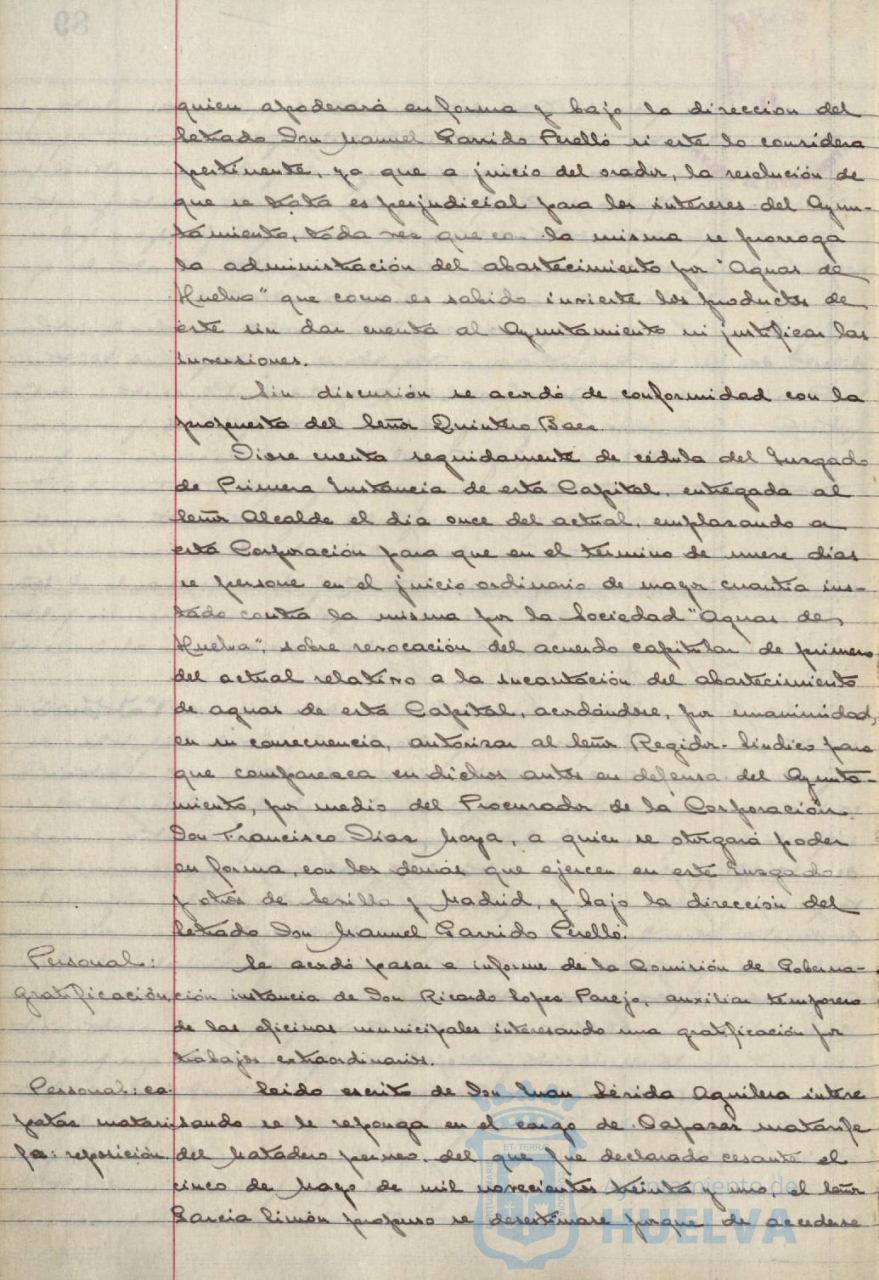 89
quien apoderará en forma y bajo la direccion del
letrado Don Manuel Garrido Perelló si este lo considera
pertinente, ya que a juicio del orador, la resolución de
que se trata es perjudicial para los intereses del Ayun-
tamiento, toda vez que con la misma se prorroga
la administración del abastecimiento por "Aguas de
Huelva" que como es sabido invierte los productos de
éste sin dar cuenta al Ayuntamiento ni justificar las
inversiones.
Sin discusión se acordó de conformidad con la
propuesta del Señor Quintero Baez.
Diose cuenta seguidamente de cédula del Juzgado
de Primera Instancia de esta Capital, entregada al
Señor Alcalde el dia once del actual, emplazando a
esta Corporación para que en el término de nueve dias
se persone en el juicio ordinario de mayor cuantía ins-
tado contra la misma por la Sociedad "Aguas de
Huelva", sobre revocación del acuerdo capitular de primero
del actual relativo a la incautación del abastecimiento
de aguas de esta Capital, acordándose, por unanimidad,
en su consecuencia, autorizar al Señor Regidor-Sindico para
que comparezca en dichos autos en defensa del Ayunta-
miento, por medio del Procurador de la Corporación
Don Francisco Diaz Moya, a quien se otorgará poder
en forma, con los demás que ejercen en este Juzgado
y otros de Sevilla y Madrid, y bajo la dirección del
letrado Don Manuel Garrido Perelló.
Personal: Se acordó pasar a informe de la Comisión de Goberna-
gratificación ción instancia de Don Ricardo Lopez Parejo, auxiliar temporero
de las oficinas municipales interesando una gratificación por
trabajos extraordinarios.
Personal: ca- Leido escrito de Don Juan Lérida Aguilera intere
pataz matari- sando se le reponga en el cargo de Capataz matarife
fe: reposición del Matadero porneo, del que fue declarado cesante el
cinco de Mayo de mil novecientos treinta y uno, el Señor
Garcia Limón propuso se desestimase porque de accederse
Ayuntamiento de
HUELVA